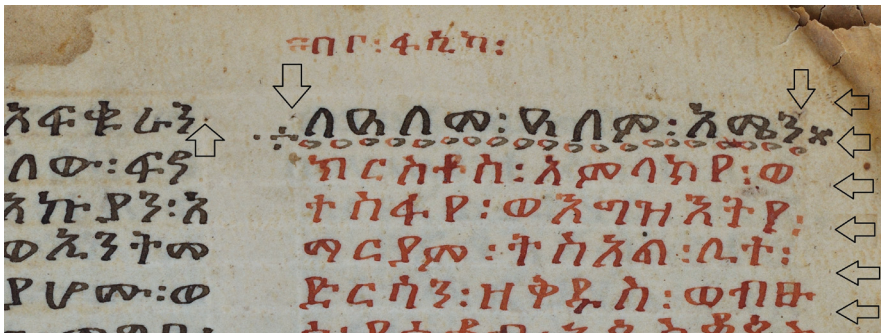 ፋሲካ፡
አፍቁራን
ለው፡ፍና
እኩያን፡እ
የሆሙ፡ወ
ለዓለመ፡ዓለም፡አሜን
ክርስቶስ፡አምላክየ፡ወ
ተስፋየ፡ወእግዝእትየ፡
ማርያም፡ተስአል፡ሊተ፡
ድርሳን፡ዘቅዱስ፡ወብፁ